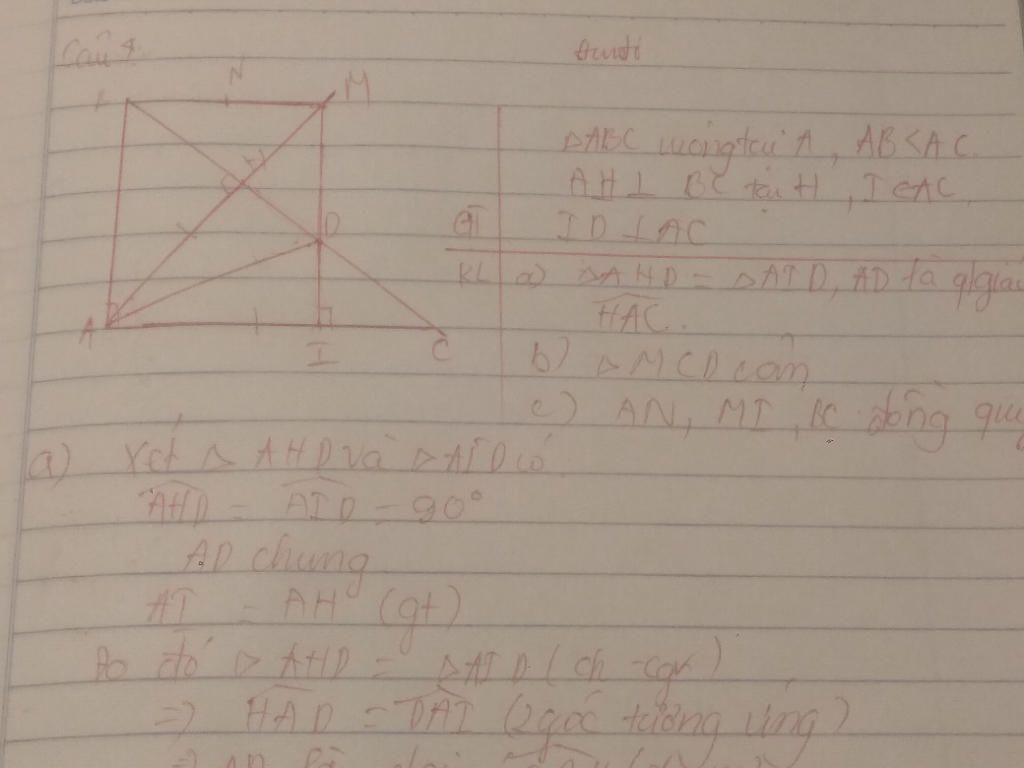 Câu 4
N
M
D
A
I
C
△ABC vuông tại A, AB < AC.
AH ⊥ BC tại H, I ∈ AC,
GT
ID ⊥ AC
KL
a) △AHD = △AID, AD là
HAC.
b) △MCD cân
c) AN, MI, BC đồng quy
a) Xét △AHD và △AID có
AHD = AID = 90°
AD chung
AI = AH (gt)
Do đó △AHD = △AID (ch - cgv)
=> HAD = DAI (2 góc tương ứng)